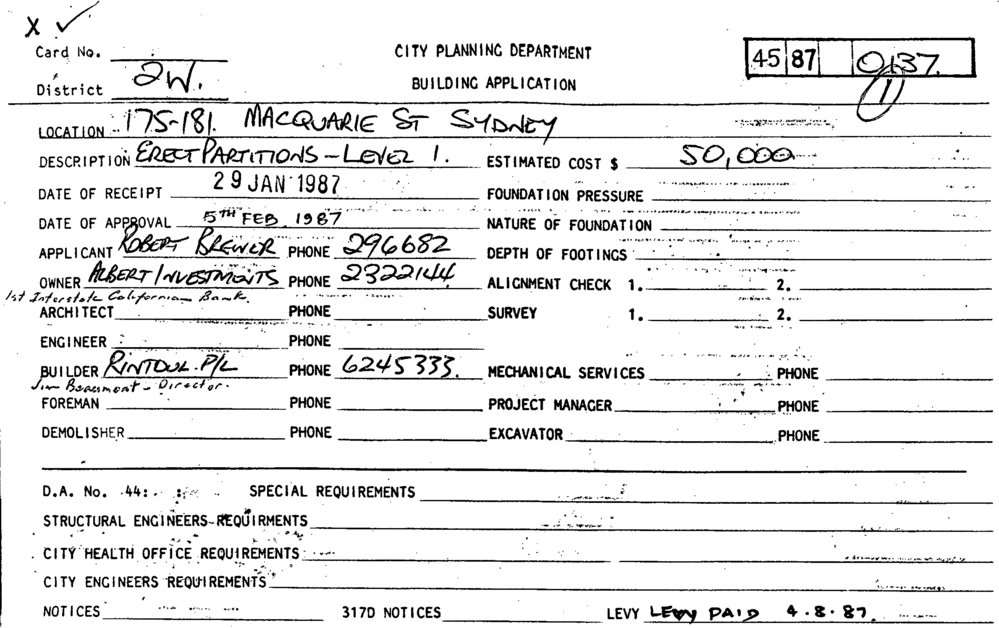 X ✓
Card No. CITY PLANNING DEPARTMENT 45 87 0137.
District 2W. BUILDING APPLICATION 1
LOCATION 175-181. MACQUARIE ST SYDNEY
DESCRIPTION ERECT PARTITIONS - LEVEL 1. ESTIMATED COST $ 50,000
DATE OF RECEIPT 29 JAN 1987 FOUNDATION PRESSURE
DATE OF APPROVAL 5TH FEB 1987 NATURE OF FOUNDATION
APPLICANT ROBERT BREWER PHONE 296682 DEPTH OF FOOTINGS
OWNER ALBERT INVESTMENTS PHONE 2322144 ALIGNMENT CHECK 1. 2.
1st Interstate Californian Bank.
ARCHITECT PHONE SURVEY 1. 2.
ENGINEER PHONE
BUILDER RINTOUL P/L PHONE 6245333. MECHANICAL SERVICES PHONE
Jim Beaumont - Director.
FOREMAN PHONE PROJECT MANAGER PHONE
DEMOLISHER PHONE EXCAVATOR PHONE
D.A. No. 44: SPECIAL REQUIREMENTS
STRUCTURAL ENGINEERS REQUIRMENTS
CITY HEALTH OFFICE REQUIREMENTS
CITY ENGINEERS REQUIREMENTS
NOTICES 317D NOTICES LEVY LEVY PAID 4.8.87.